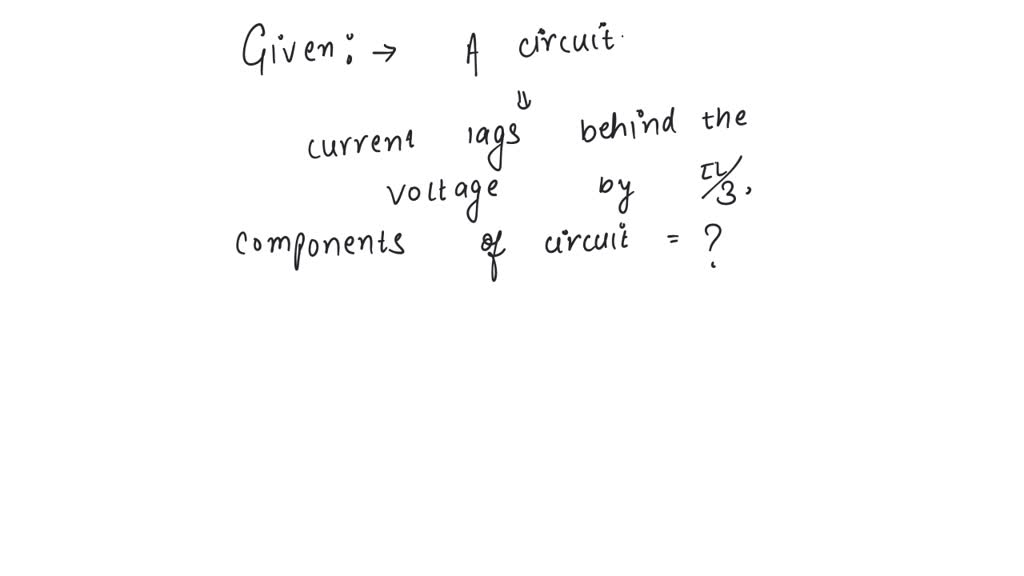 Given: → A circuit.
⇓
current lags behind the
voltage by π/3.
components of circuit = ?